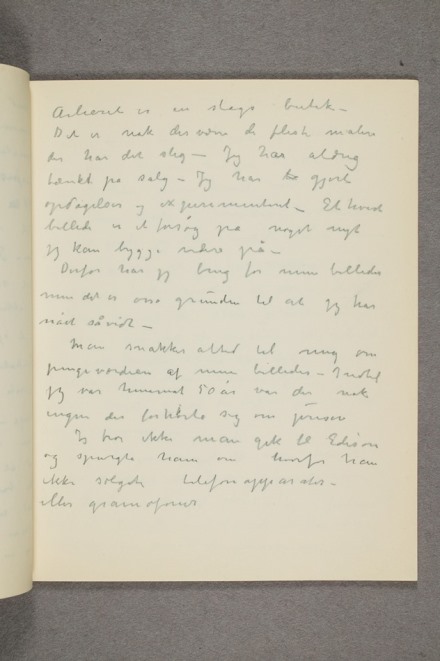 er en slags butik –
Det er nok desværre de fleste malere
der har det slig – Jeg har aldrig
tænkt på salg – Jeg har gjort
opdagelser og experimentert – Et hvert
billede er et forsøg på noget nyt
jeg kan bygge videre på –
Derfor har jeg brug for mine billeder
men det er osse grunden til at jeg har
nået så vidt –
Man snakker altid til mig om
pengeværdien af mine billeder – Indtil
jeg var 50 år var der nok
ingen der sig om prisen
Jeg tror ikke man gik til Edison
og spurgte ham om hvorfor han
ikke solgte telefonapparater –
eller gramofoner